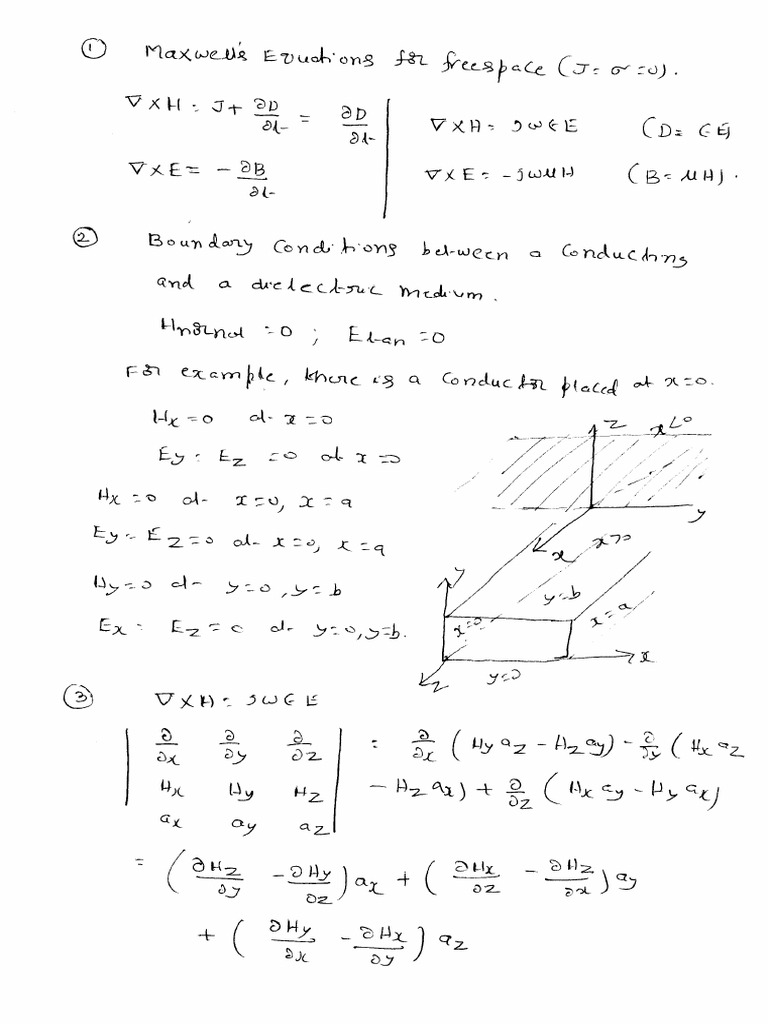 ① Maxwell's Equations for freespace (J = σ = 0).
∇ × H = J + ∂D/∂t = ∂D/∂t
∇ × E = - ∂B/∂t
∇ × H = jωϵE (D = ϵE)
∇ × E = -jωμH (B = μH).
② Boundary Conditions between a Conducting
and a dielectric medium.
Hnormal = 0 ; Etan = 0
For example, there is a conductor placed at x=0.
Hx = 0 at x = 0
Ey = Ez = 0 at x = 0
Hx = 0 at x = 0, x = a
Ey = Ez = 0 at x = 0, x = a
Hy = 0 at y = 0, y = b
Ex = Ez = 0 at y = 0, y = b.
z
x<0
y
x
x>0
y
y=b
x=0
x=a
x
z
y=0
③ ∇ × H = jωϵE
| ∂/∂x ∂/∂y ∂/∂z | = ∂/∂x (Hy az - Hz ay) - ∂/∂y (Hx az
| Hx Hy Hz | - Hz ax) + ∂/∂z (Hx ay - Hy ax)
| ax ay az |
= (∂Hz/∂y - ∂Hy/∂z) ax + (∂Hx/∂z - ∂Hz/∂x) ay
+ (∂Hy/∂x - ∂Hx/∂y) az